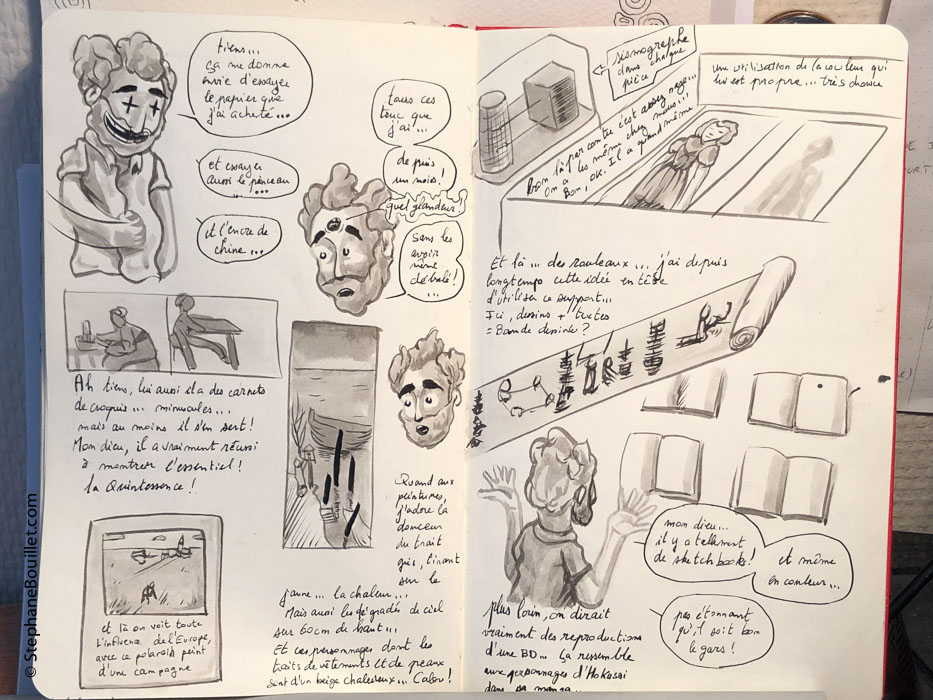 tiens...
ça me donne
envie d'essayer
le papier que
j'ai acheté...
et essayer
aussi le pinceau
!...
et l'encre de
chine...
tous ces
truc que
j'ai...
depuis
un mois!
quel glandeur!
sans les
avoir
même
déballé!
...
Ah tiens, lui aussi il a des carnets
de croquis... minuscules...
mais au moins il s'en sert!
Mon dieu, il a vraiment réussi
à montrer l'essentiel!
la Quintessence!
et là on voit toute
l'influence de l'Europe,
avec ce polaroid peint
d'une campagne
Quand aux
peintures,
j'adore la
douceur
du trait
gris, tirant
sur le
jaune... la chaleur...
Mais aussi les dégradés de ciel
sur 60cm de haut...
Et ces personnages dont les
traits de vêtements et de peaux
sont d'un beige chaleureux... Calou!
sismographe
dans chaque
pièce
Bon là par contre c'est assez nage...
On a les même chez nous...
Bon, ok. Il a quand même
une utilisation de la couleur qui
lui est propre... très douce
Et là... des rouleaux... j'ai depuis
longtemps cette idée en tête
d'utiliser ce support...
Ici, dessins + textes
= Bande dessinée?
mon dieu...
il y a tellement
de sketchbooks!
et même
en couleur...
pas étonnant
qu'il soit bon
le gars!
plus loin, on dirait
vraiment des reproductions
d'une BD. ça ressemble
aux personnages d'Hokusai
dans sa manga...
© StephaneBouillet.com